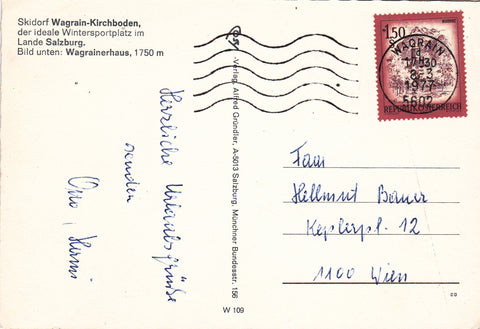 Skidorf Wagrain-Kirchboden,
der ideale Wintersportplatz im
Lande Salzburg.
Bild unten: Wagrainerhaus, 1750 m
Herzliche Urlaubsgrüße
senden
Otto,
-Verlag Alfred Gründler, A-5013 Salzburg, Münchner Bundesstr. 156
W 109
1.50
REPUBLIK ÖSTERREICH
WAGRAIN
1977
Fam
Hellmut Bauer
Keplerpl. 12
1100 Wien